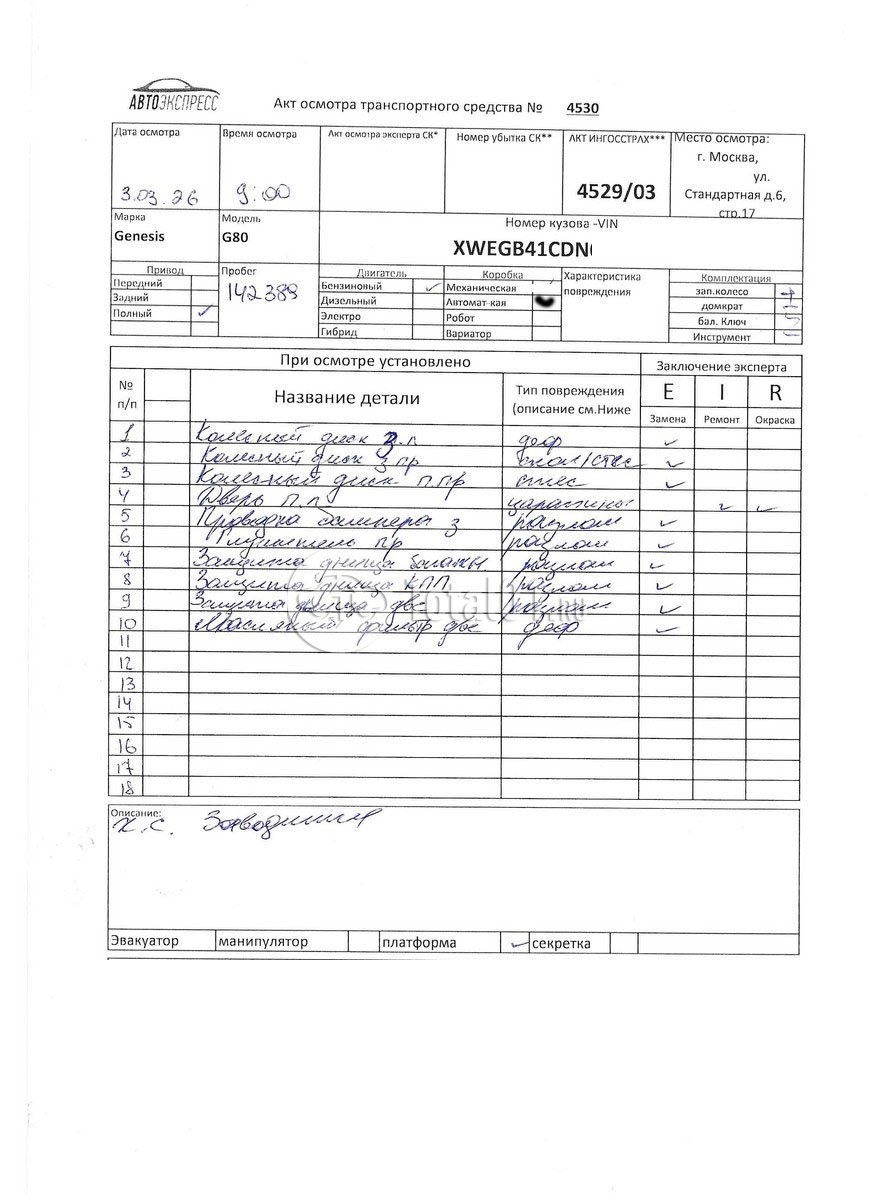 АВТОЭКСПРЕСС
Акт осмотра транспортного средства № 4530
Дата осмотра Время осмотра Акт осмотра эксперта СК* Номер убытка СК** АКТ ИНГОССТРАХ*** Место осмотра:
г. Москва,
ул.
3.03.26 9:00 4529/03 Стандартная д.6,
стр.17
Марка Модель Номер кузова -VIN
Genesis G80
XWEGB41CDN
Привод Пробег Двигатель Коробка Характеристика Комплектация
Передний 142389 Бензиновый Механическая повреждения зап.колесо
Задний Дизельный Автомат-кая домкрат
Полный Электро Робот бал. Ключ
Гибрид Вариатор Инструмент
При осмотре установлено Заключение эксперта
№ п/п Название детали Тип повреждения (описание см.Ниже E I R
Замена Ремонт Окраска
1 Колесный диск з.л деф
2 Колесный диск з пр скол/стес
3 Колесный диск п.пр стес
4 Дверь п.л царапины
5 Проводка бампера з разлом
6 Глушитель пр разлом
7 Защита днища разлом
8 Защита днища КПП разлом
9 Защита днища двс разлом
10 Масляный фильтр двс деф
11
12
13
14
15
16
17
18
Описание:
х.с.
Эвакуатор манипулятор платформа секретка